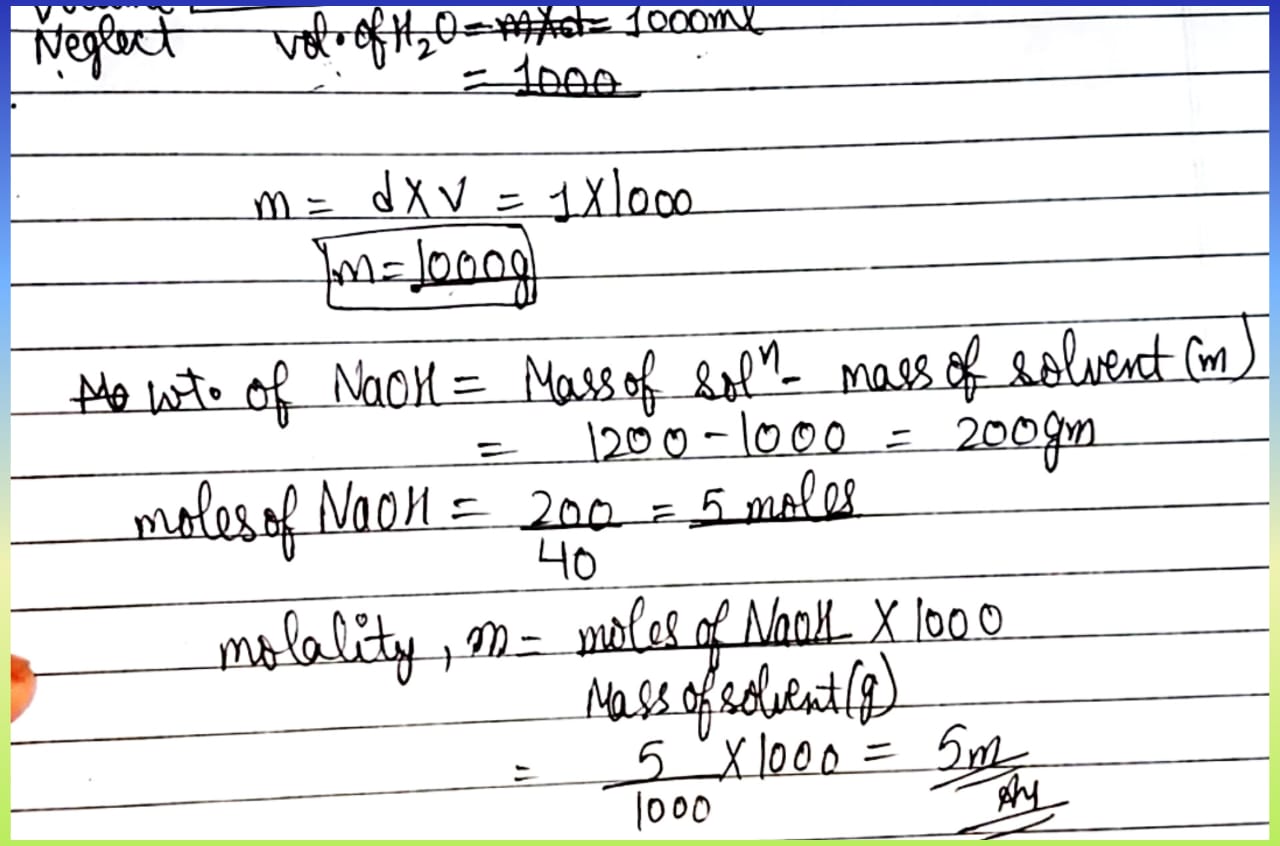 Neglect vol. of H₂O = m×d = 1000ml
= 1000
m = d X V = 1X1000
m = 1000g
Mo wt. of NaOH = Mass of solⁿ - mass of solvent (m)
= 1200 - 1000 = 200gm
moles of NaOH = 200/40 = 5 moles
molality, m = moles of NaOH X 1000
Mass of solvent (g)
= 5/1000 X 1000 = 5m
Ans